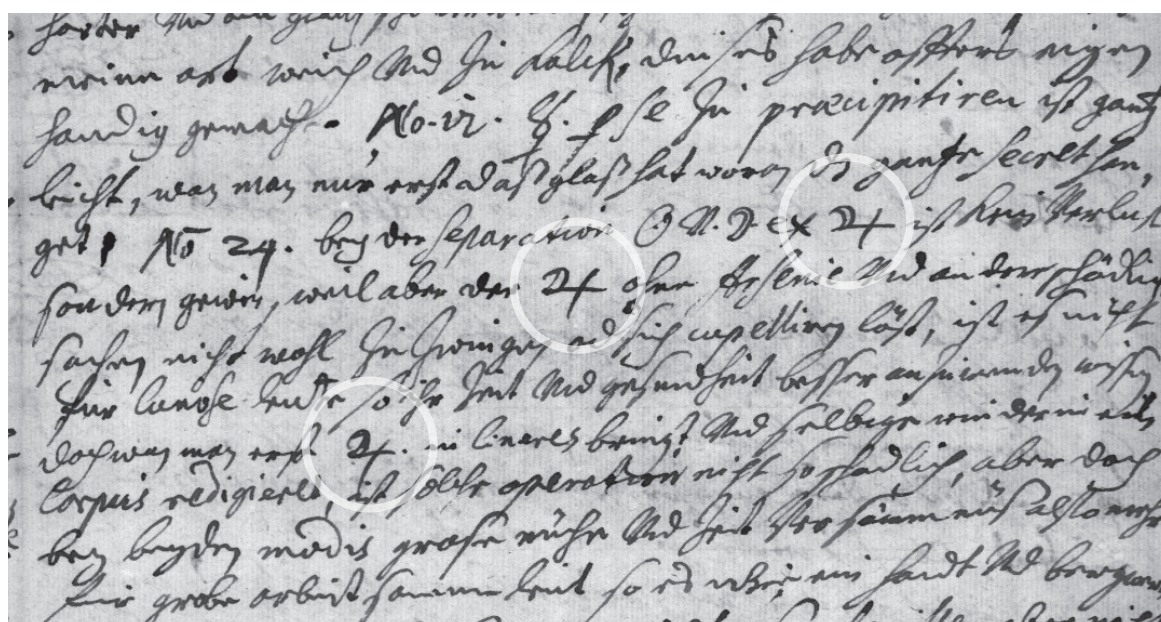 harter Vnd am
meine art weich Vnd Zu Kalck, dan ichs habe offters eigen
handig gemacht. No. 12. ☿. p se Zu præcipitiren ist gantz
leicht, wan man nur erst daß glaß hat woran dz gantze secret han,
get. No 24. bey der separation ☉ V. ☽. ex ♃ ist Kein Verlust
sondern gewin, weil aber der ♃ ohne Arsenic Vnd andere schädliche
sachen nicht wohl Zu Zwingen sich capelliren läst, ist es nicht
für leute so ihr Zeit Vnd gesundheit besser anzuwenden wissen
doch wan man erst ♃. in cineres bringt Vnd selbige wider in ein
Corpus redigiert, ist solche operation nicht so schadlich, aber doch
bey beyden modis grose mühe Vnd Zeit Versäumnüs also mehr
für grobe arbeit so ein handt Vnd